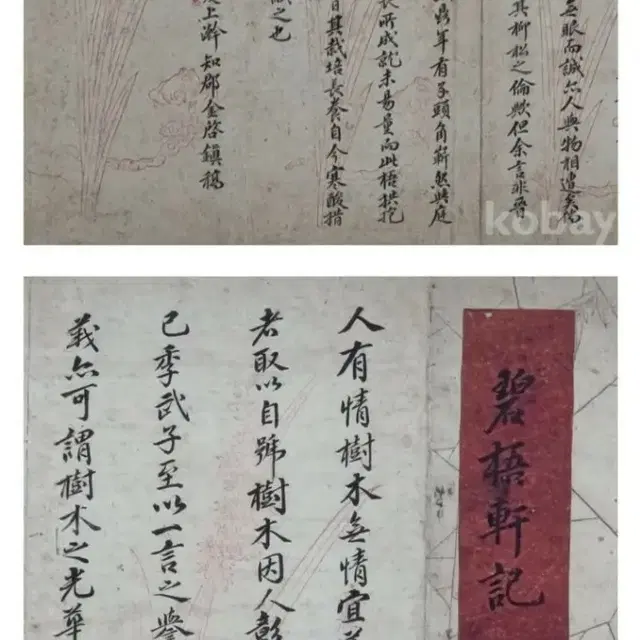 眼而誠亦人與物相遭矣
其柳松之倫歟但余言非晉
年有子頭角嶄然與庭
所成就未易量而此梧拱
其栽培長養自今寒酸措
之也
上澣知郡金啓鎭稿
kobay
碧梧軒記
人有情樹木無情宜
者取以自號樹木因人彰
已季武子至以一言之譽
義亦可謂樹木之光華